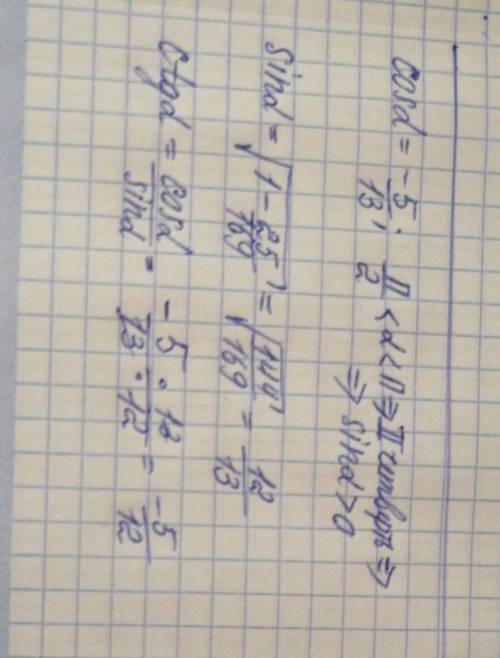 cosα = -5/13; П/2 < α < П ⇒ II четверть ⇒
⇒ sinα > 0
sinα = √(1 - 25/169) = √(144/169) = 12/13
ctgα = cosα/sinα = (-5 · 12)/(13 · 12) = -5/12